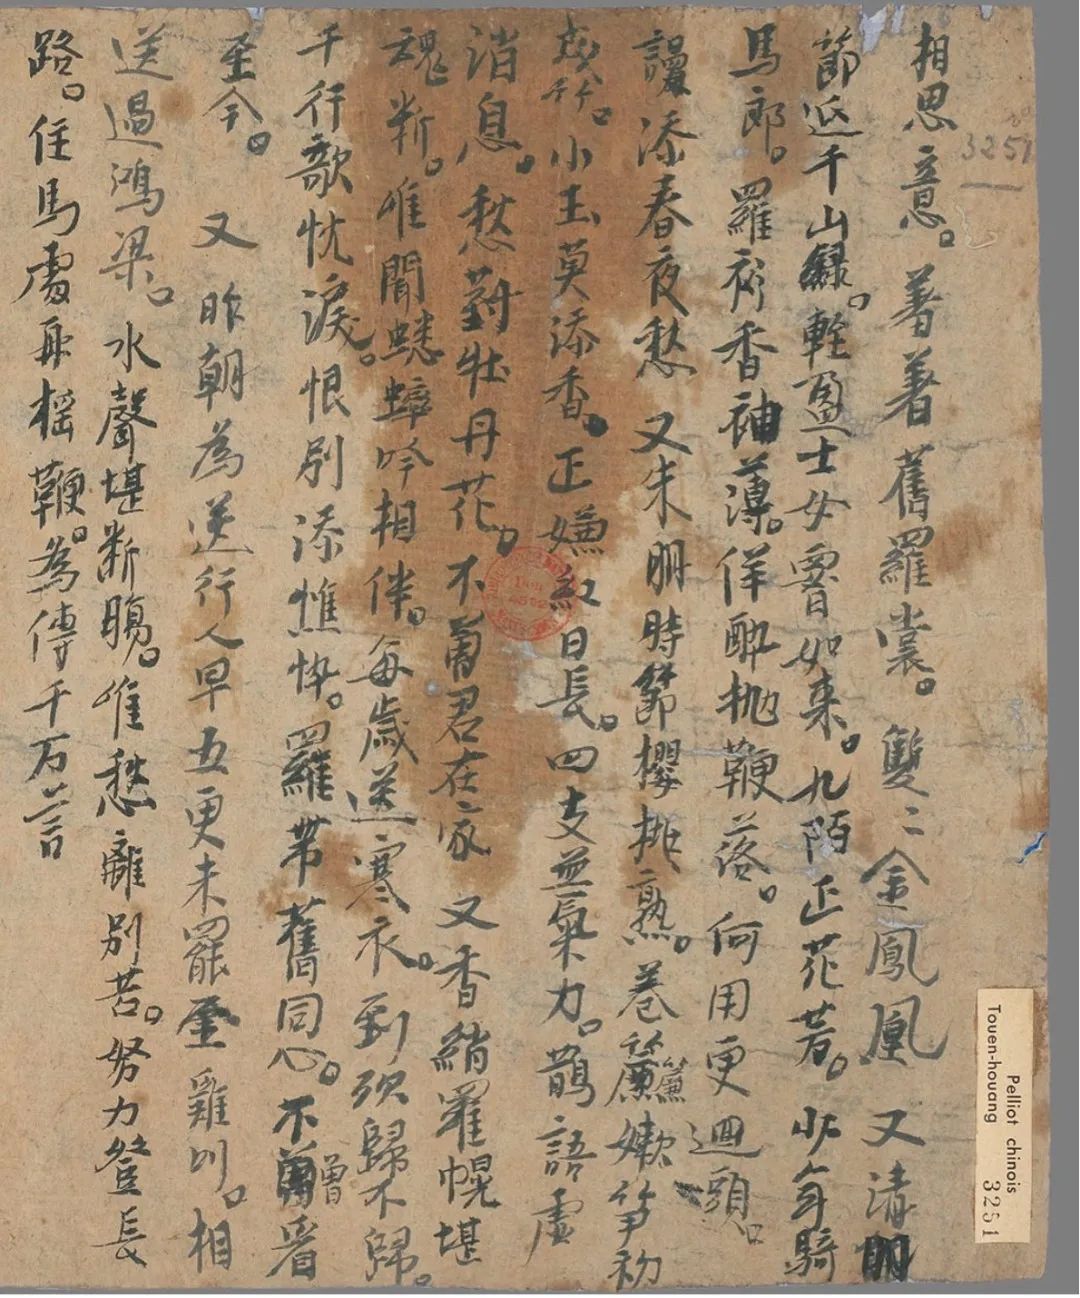 相思意。著著舊羅裳。雙〻金鳳凰 又清明
節近千山緑。輕盈士女署如束。九陌正花芳。少年騎
馬郎。羅衫香袖薄。佯醉抛鞭落。何用更迴頭。
謾添春夜愁 又朱明時節櫻桃熟。卷簾簾嫩笋初
成竹。小玉莫添香。正嫌紅日長。四支無氣力。鵲語虛
消息。愁對牡丹花。不曾君在家 又香綃羅幌堪
魂断。唯聞蟋蟀吟相伴。每歲送寒衣。到頭歸不歸。
千行欹枕淚。恨別添憔悴。羅帶舊同心。不曾曾看
至今。 又昨朝為送行人早五更未罷金雞叫。相
送過鴻梁。水聲堪断腸。唯愁離別苦。努力登長
路。住馬處再摇鞭。為傳千万言
3251
Pelliot chinois
Touen-houang 3251